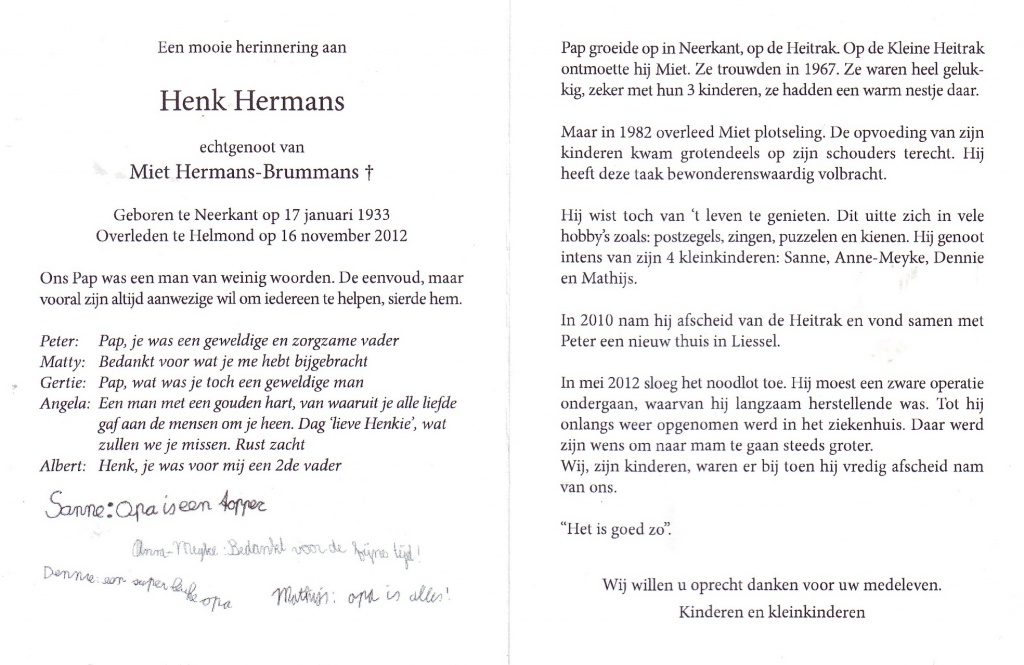 Een mooie herinnering aan
Henk Hermans
echtgenoot van
Miet Hermans-Brummans †
Geboren te Neerkant op 17 januari 1933
Overleden te Helmond op 16 november 2012
Ons Pap was een man van weinig woorden. De eenvoud, maar
vooral zijn altijd aanwezige wil om iedereen te helpen, sierde hem.
Peter: Pap, je was een geweldige en zorgzame vader
Matty: Bedankt voor wat je me hebt bijgebracht
Gertie: Pap, wat was je toch een geweldige man
Angela: Een man met een gouden hart, van waaruit je alle liefde
gaf aan de mensen om je heen. Dag ‘lieve Henkie’, wat
zullen we je missen. Rust zacht
Albert: Henk, je was voor mij een 2de vader
Sanne: Opa is een topper
Anna-Meyke: Bedankt voor de fijnes tijd!
Dennie: een super leuke opa
Mathijs: opa is alles!
Pap groeide op in Neerkant, op de Heitrak. Op de Kleine Heitrak
ontmoette hij Miet. Ze trouwden in 1967. Ze waren heel geluk-
kig, zeker met hun 3 kinderen, ze hadden een warm nestje daar.
Maar in 1982 overleed Miet plotseling. De opvoeding van zijn
kinderen kwam grotendeels op zijn schouders terecht. Hij
heeft deze taak bewonderenswaardig volbracht.
Hij wist toch van ‘t leven te genieten. Dit uitte zich in vele
hobby’s zoals: postzegels, zingen, puzzelen en kienen. Hij genoot
intens van zijn 4 kleinkinderen: Sanne, Anne-Meyke, Dennie
en Mathijs.
In 2010 nam hij afscheid van de Heitrak en vond samen met
Peter een nieuw thuis in Liessel.
In mei 2012 sloeg het noodlot toe. Hij moest een zware operatie
ondergaan, waarvan hij langzaam herstellende was. Tot hij
onlangs weer opgenomen werd in het ziekenhuis. Daar werd
zijn wens om naar mam te gaan steeds groter.
Wij, zijn kinderen, waren er bij toen hij vredig afscheid nam
van ons.
“Het is goed zo”.
Wij willen u oprecht danken voor uw medeleven.
Kinderen en kleinkinderen